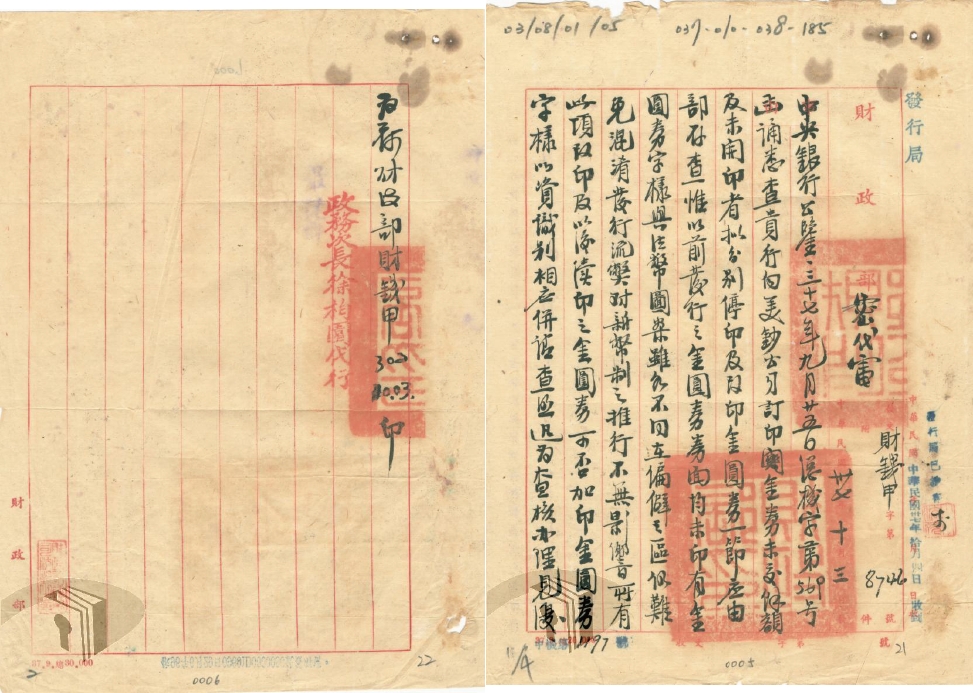 03/08/01/05
037-010-038-185
發行局
財政部
密代電
財錢甲
字第
8746
號
件
卅七 十 三
中央銀行公鑒三十七年九月廿五日滬機字第569號
函誦悉查貴行向美鈔公司訂印關金券未交餘額
及未開印者擬分別停印及改印金圓券一節應由
部存查惟以前發行之金圓券券面均未印有金
圓券字樣與法幣圖案雖各不同在偏僻之區仍難
免混淆發行流弊對新幣制之推行不無影響所有
此項改印及以後續印之金圓券可否加印金圓券
字樣以資識別相應併請查照迅為查核亦理見復
21
0005
為荷財政部財錢甲
302
10.03.
印
政務次長徐柏園代行
財政部
0001
0006
22
2